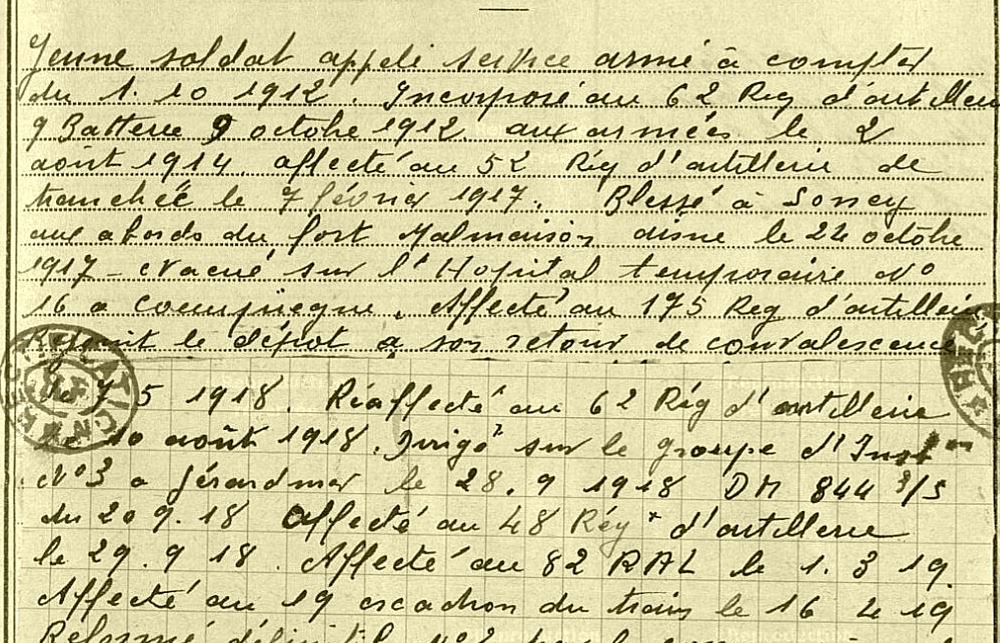 Jeune soldat appelé service armé à compter
du 1. 10 1912. Incorporé au 62 Reg d'artillerie
9 Batterie 9 octobre 1912. aux armées le 2
août 1914. affecté au 52 Rég d'artillerie de
tranchée le 7 février 1917. Blessé à
aux abords du fort Malmaison aisne le 22 octobre
1917 - évacué sur l'Hopital temporaire No
16 a Coempiegne. Affecté au 175 Reg d'artillerie
Rejoint le dépot a son retour de convalescence
7 5 1918. Réaffecté au 62 Rég d'artillerie
le 10 août 1918. Dirigé sur le groupe d'Inst
No 3 a Gérardmer le 28. 9 1918 DM 844 3/5
du 20 9. 18 Affecté au 48 Rég d'artillerie
le 29. 9 18. Affecté au 82 RAL le 1. 3 19.
Affecté au 19 escadron du train le 16 4 19
Reformé